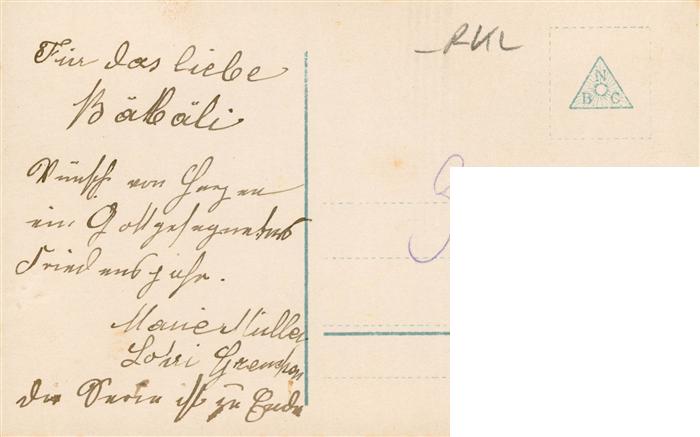 Für das liebe
Bäbäli
Wünsch von Herzen
ein Gottgesegnetes
Friedensjahr.
Marie Müller
Lohri Grenchen
die Serie ist zu Ende
RKL
N
B C